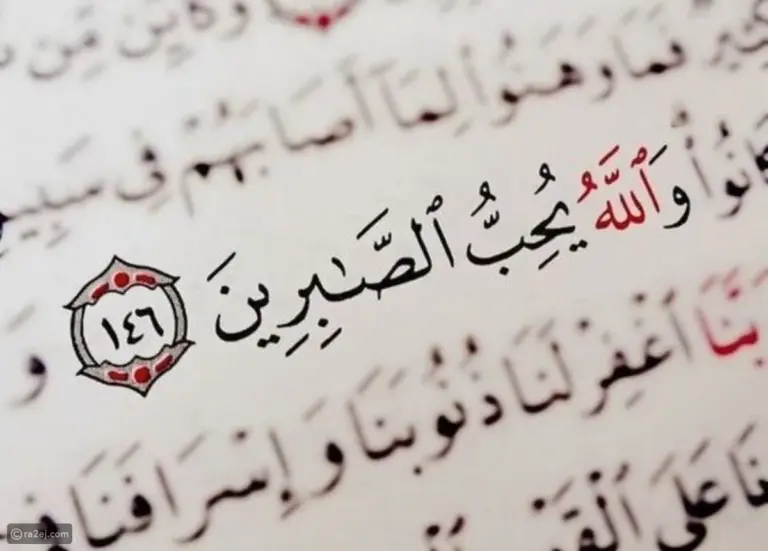 وَكَأَيِّن مِّن
كَثِيرٌ فَمَا وَهَنُوا۟ لِمَآ أَصَابَهُمْ فِى سَبِيلِ
كَانُوا۟ وَٱللَّهُ يُحِبُّ ٱلصَّـٰبِرِينَ ١٤٦ وَ
بَّنَا ٱغْفِرْ لَنَا ذُنُوبَنَا وَإِسْرَافَنَا فِ
نَا عَلَى ٱلْقَوْ
©ra2ej.com